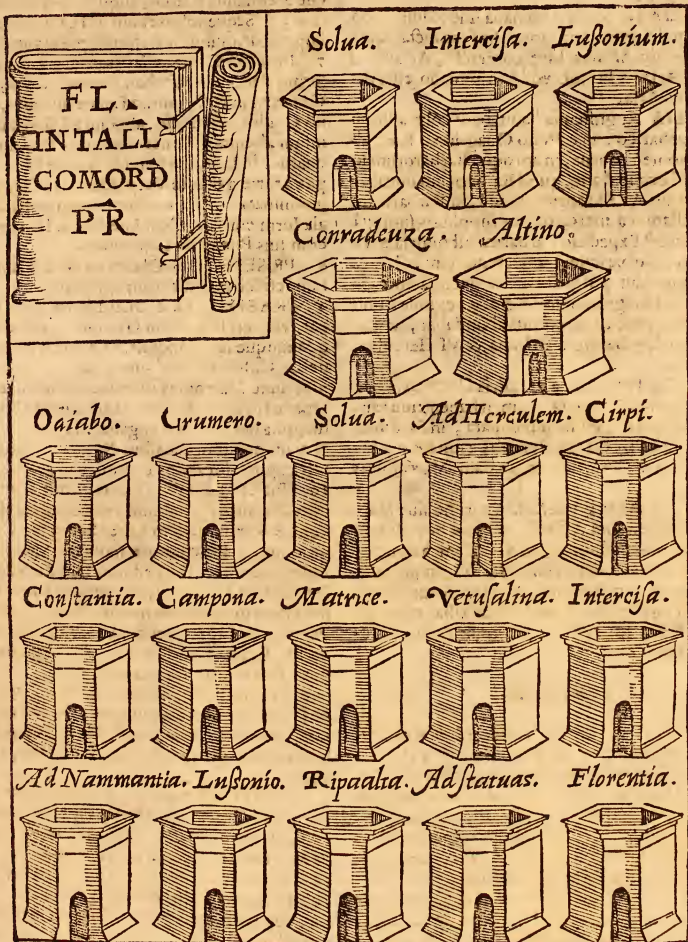 FL.
INTALL
COMORD
PR
Solua. Intercisa. Lussonium.
Conradcuza. Altino.
Oaiabo. Crumero. Solua. Ad Herculem. Cirpi.
Constantia. Campona. Matrice. Vetusalina. Intercisa.
Ad Nammantia. Lussonio. Ripaalta. Ad statuas. Florentia.